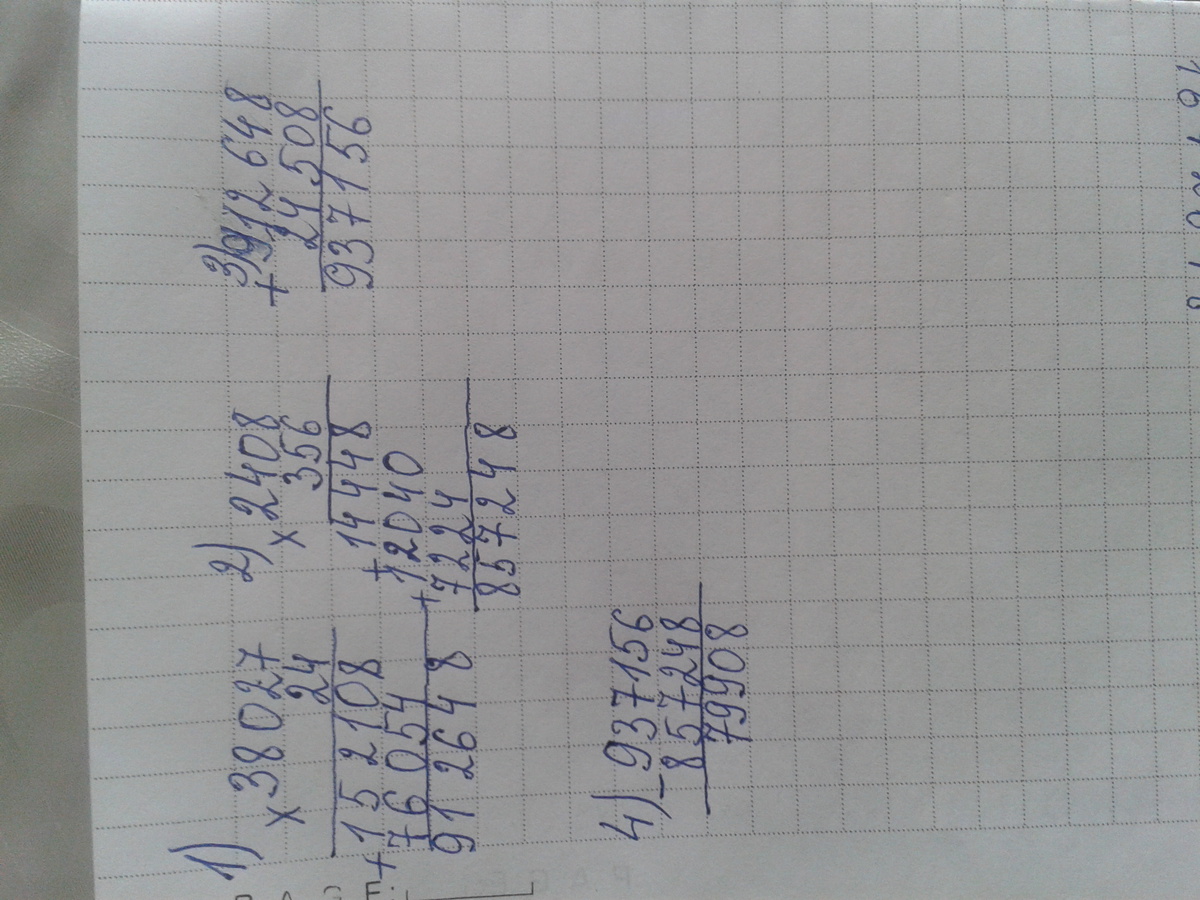 1) × 38027
24
+ 152108
76054
912648
2) × 2408
356
+ 14448
+ 12040
7224
857248
3) + 912648
24508
937156
4) - 937156
857248
79908
PAGE: